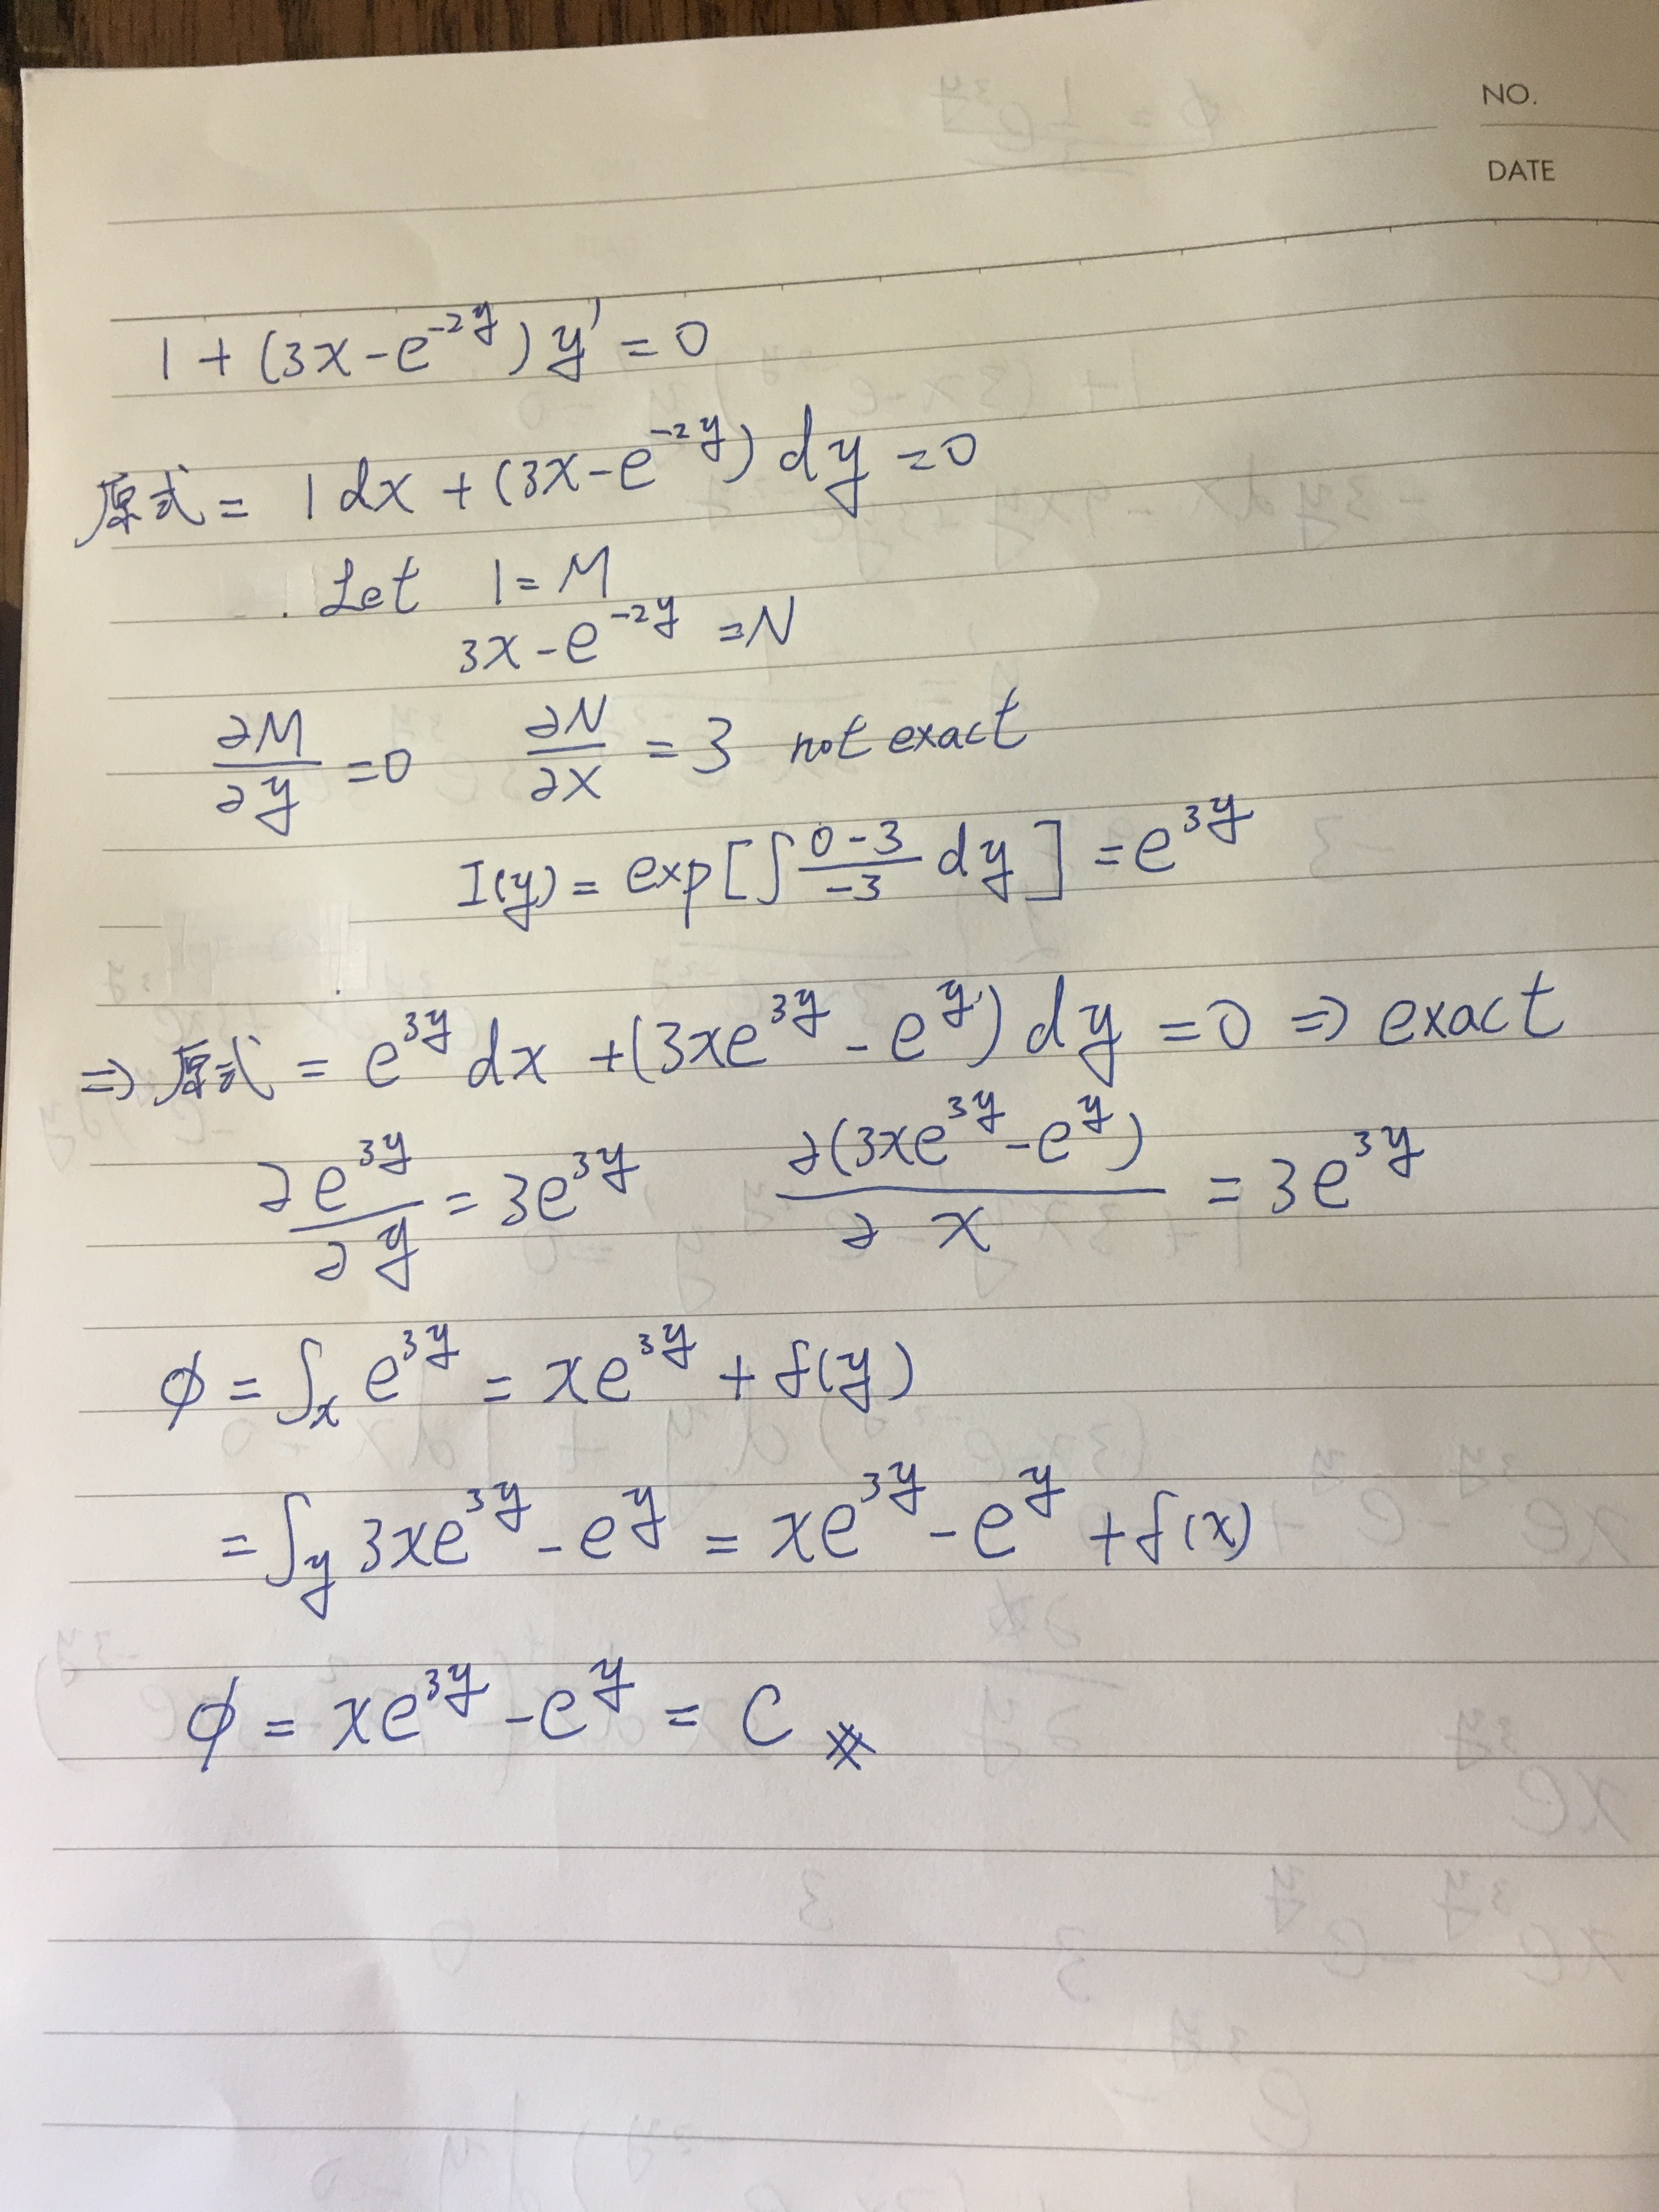 NO.
DATE
1 + (3x - e^{-2y}) y' = 0
原式 = 1 dx + (3x - e^{-2y}) dy = 0
Let 1 = M
3x - e^{-2y} = N
∂M/∂y = 0 ∂N/∂x = 3 not exact
I(y) = exp[∫ (0-3)/(-3) dy] = e^{3y}
⇒ 原式 = e^{3y} dx + (3xe^{3y} - e^{y}) dy = 0 ⇒ exact
∂e^{3y}/∂y = 3e^{3y} ∂(3xe^{3y} - e^{y})/∂x = 3e^{3y}
φ = ∫_x e^{3y} = xe^{3y} + f(y)
= ∫_y 3xe^{3y} - e^{y} = xe^{3y} - e^{y} + f(x)
φ = xe^{3y} - e^{y} = C